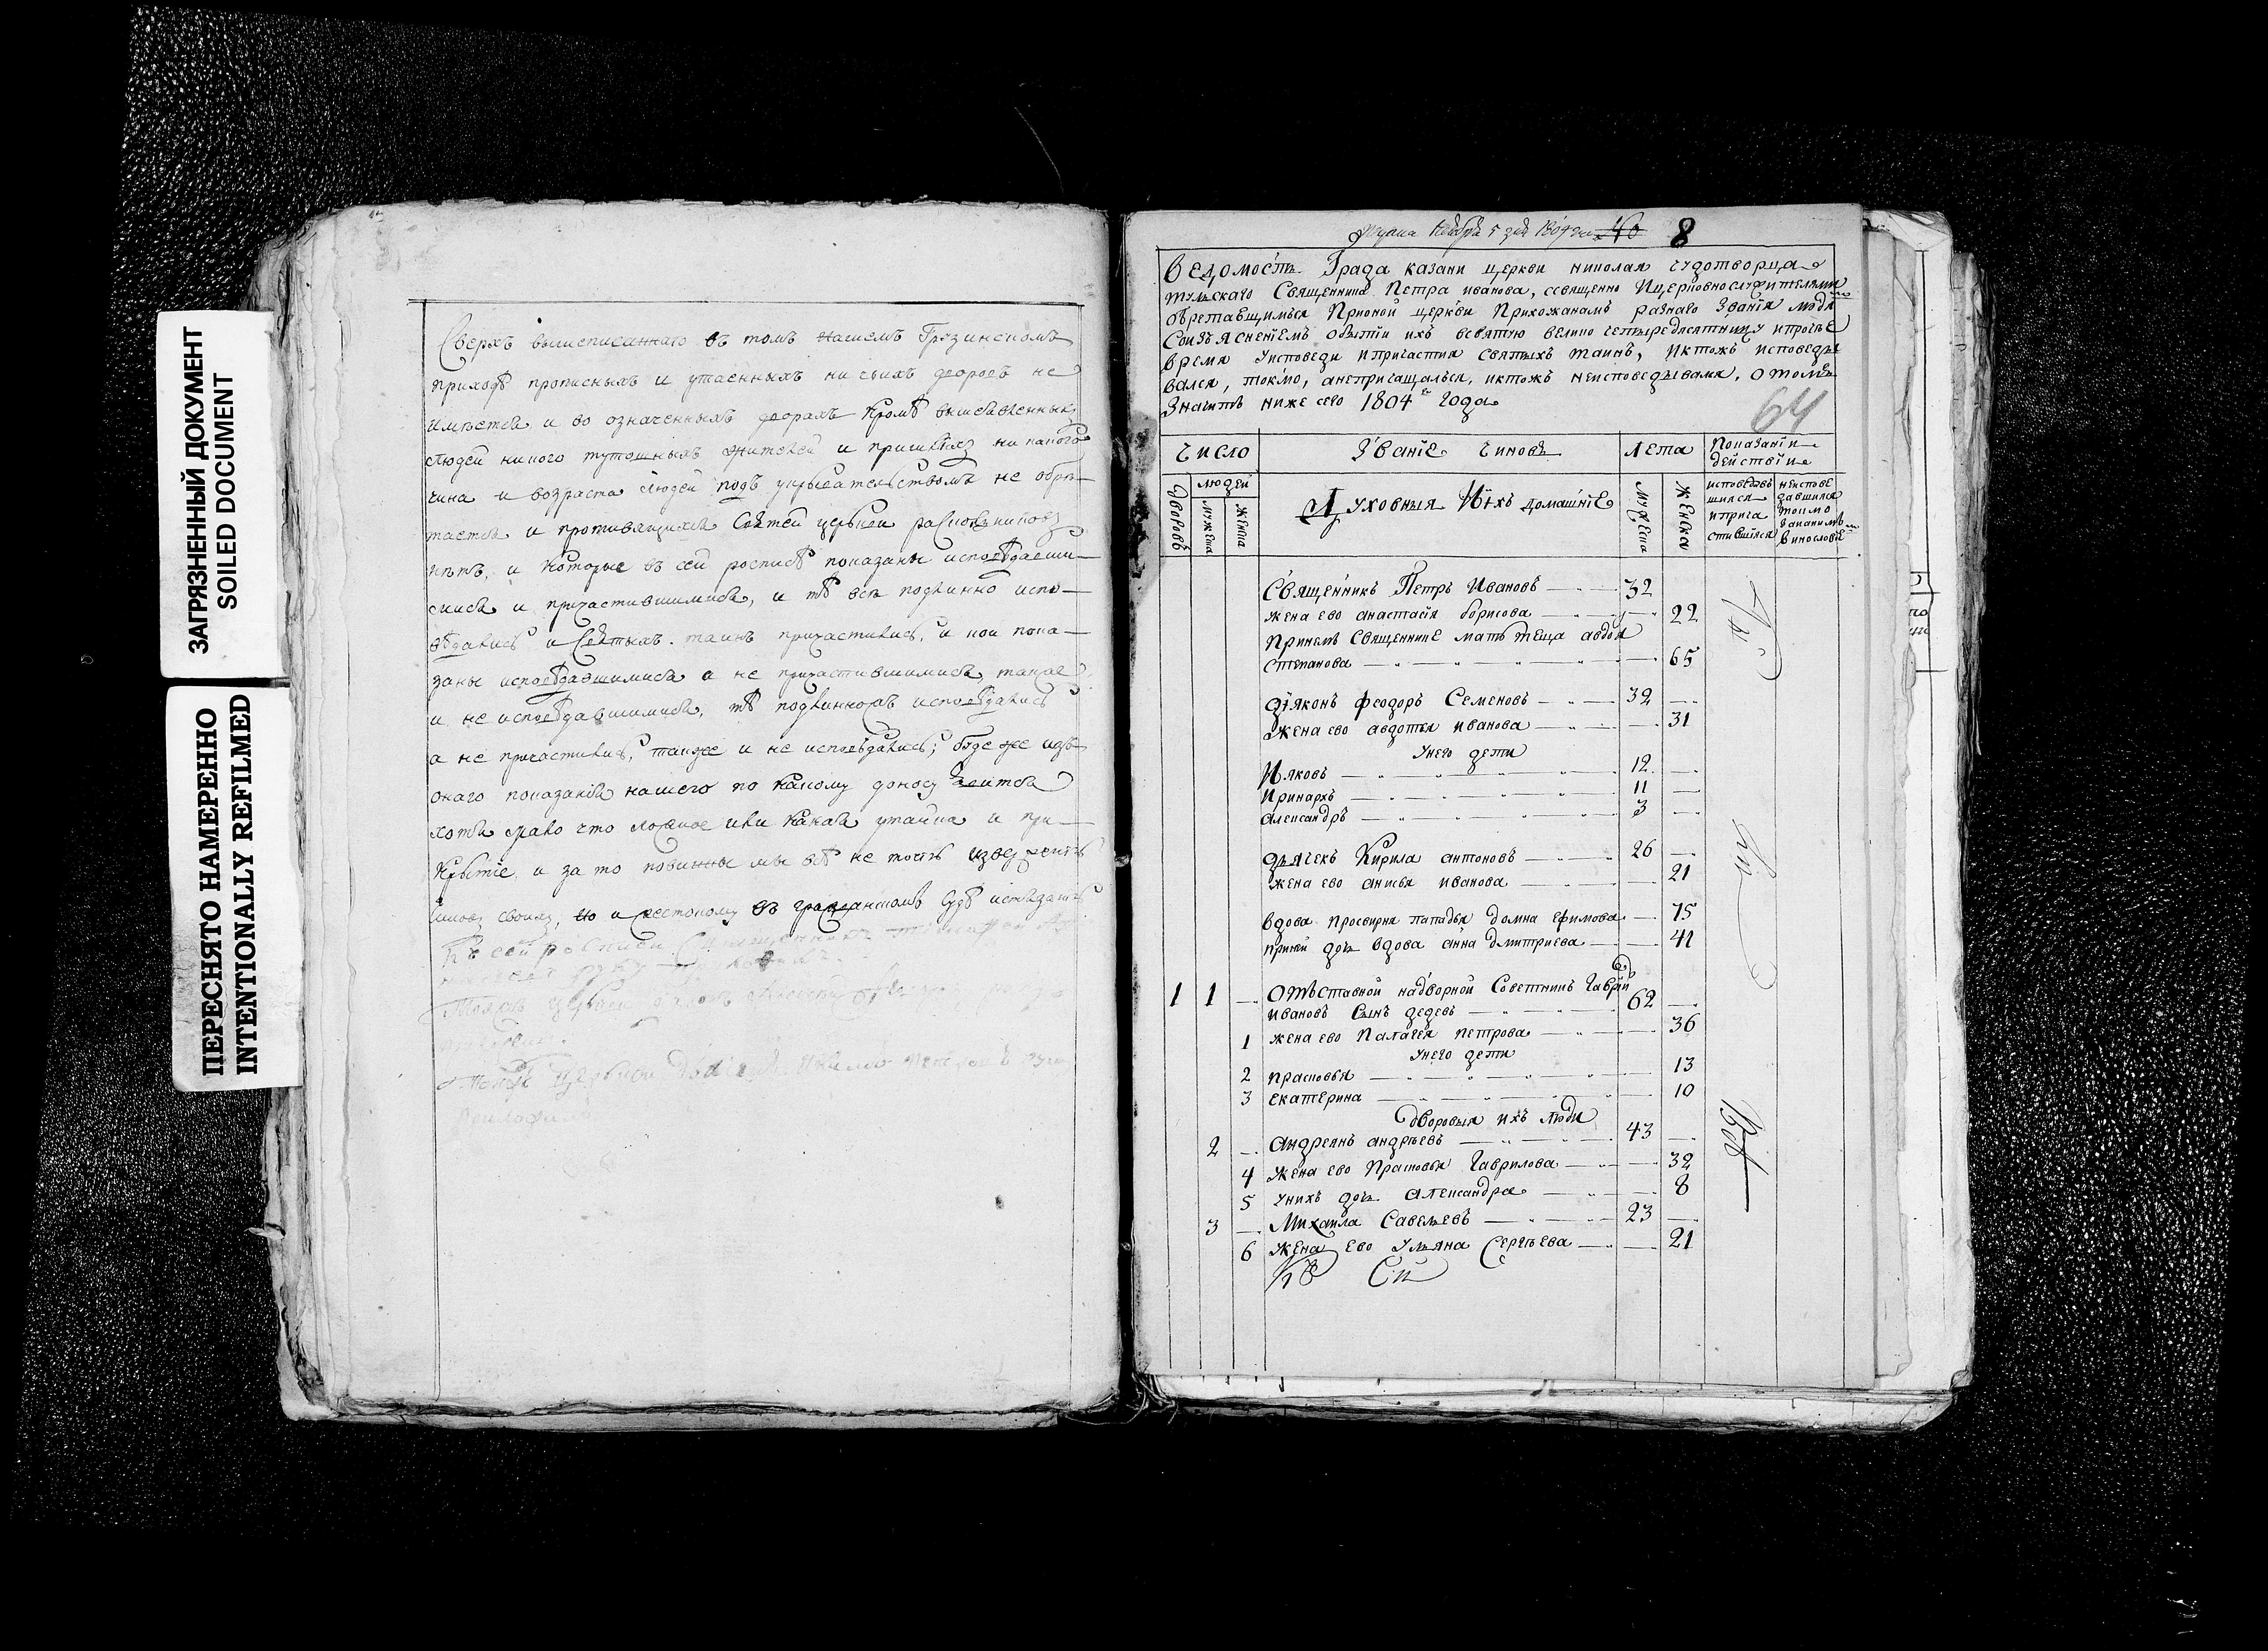 ЗАГРЯЗНЕННЫЙ ДОКУМЕНТ
SOILED DOCUMENT
ПЕРЕСНЯТО НАМЕРЕННО
INTENTIONALLY REFILMED
Сверхъ вышеписаннаго въ томъ нашемъ Грузинскомъ
приходѣ прописныхъ и утаенныхъ ничьихъ дворовъ не
имѣется и во означенныхъ дворахъ кромѣ вышеявленныхъ
людей никого тутошныхъ жителей и пришлыхъ никакого
чина и возраста людей подъ укрывательствомъ не обрѣ-
тается и противящихся святей церькви расколниковъ
нѣтъ, и которые въ сей росписѣ показаны исповѣдавши-
мися и причастившимися, и тѣ все подлинно испо-
вѣдались и святыхъ таинъ причастились, и кои пока-
заны исповѣдавшимися а не причастившимися, также
и не исповѣдавшимися, тѣ подлинно исповѣдались
а не причастились, также и не исповѣдались; буде же изъ
онаго показанія нашего по какому доносу явится
хотя мало что ложное или какая утайка и при-
крытіе, и за то повинны мы всѣ не точію извержению
чиновъ своихъ, но и жестокому въ гражданскомъ судѣ истязанию
Къ сей росписи Священникъ
8
Ведомость Града казани церкви николая чудотворца
тульскаго Священника Петра иванова, освященно Ицерковнослужителями
обретавщимъся Прионой церкви Прихожанамъ разнаго Званїя людямъ
Соизъясненїемъ обытїи ихъ всвятую велико четыредесятницу ипротчее
время уисповеди ипричастия святыхъ таинъ, Иктожъ исповеды
вался, токмо, анепричащался, иктожъ неисповедывался, отомъ
Значитъ ниже сего 1804 года
64
Число Званїе чиновъ Лета Показанїи
действїи
Дворовъ людей Мужеска Женска Духовныя Иихъ домашнїе Мужеска Женска исповедовъ
шился
иприча
стившїися неиспове
давшился
токмо
закакимъ
винословїе
Священникъ Петръ Ивановъ 32
жена ево анастасїя борисова 22
Принемъ священнике мать теща авдотья
степанова 65
дїяконъ феодоръ Семеновъ 32
жена ево авдотья иванова 31
унего дети
Ияковъ 12
Иринархъ 11
александръ 3
дьячекъ Кирила антоновъ 26
жена ево анисья иванова 21
вдова просвирня пападья домна ефимова 75
приней дочь вдова анна дмитриева 41
1 1 Отъставной надворной Советникъ Гаврил
ивановъ Сынъ дедевъ 62
1 жена ево Палагея петрова 36
унего дети
2 прасковья 13
3 екатерина 10
дворовыя ихъ люди
2 андреянъ андреевъ 43
4 жена ево Прасковья Гаврилова 32
5 унихъ дочь александра 8
3 Михаила Савельевъ 23
6 жена ево ульяна Сергѣева 21
Всѣ